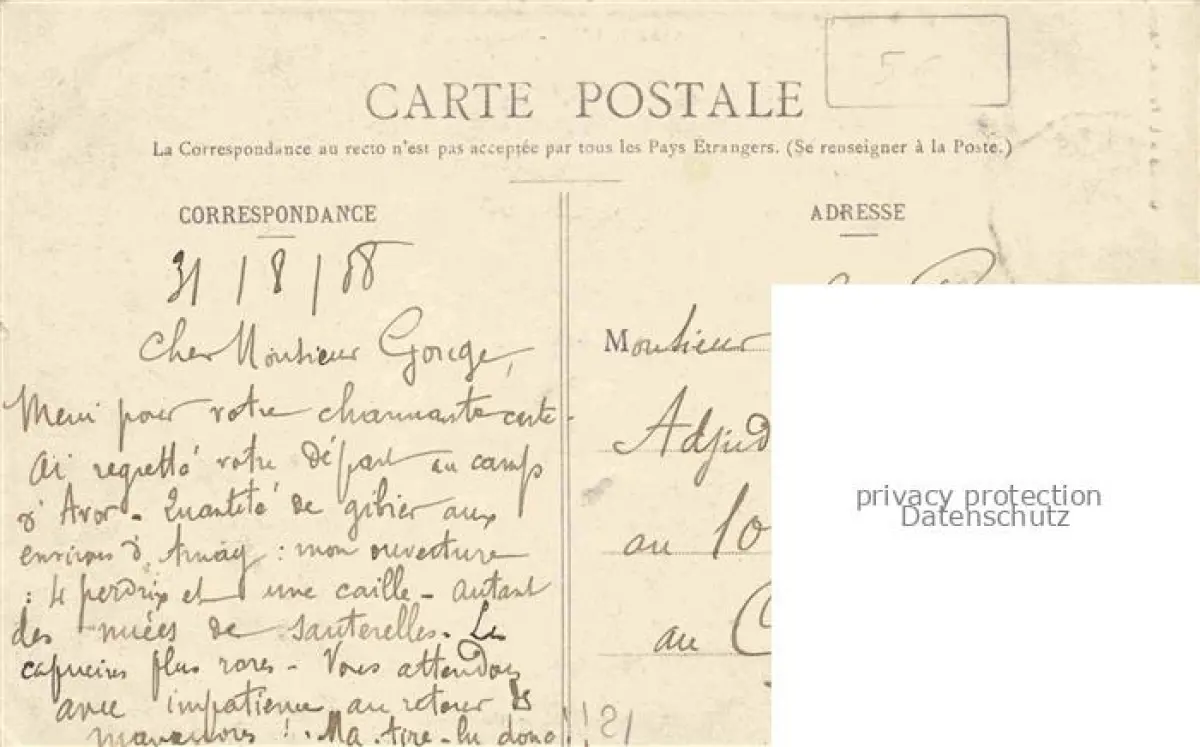 5
CARTE POSTALE
La Correspondance au recto n'est pas acceptée par tous les Pays Étrangers. (Se renseigner à la Poste.)
CORRESPONDANCE
31 / 8 / 08
Cher Monsieur Gouge,
Merci pour votre charmante carte.
Ai regretté votre départ au camp
d'Avor. Quantité de gibier aux
environs d'Arnay : mon ouverture
: 4 perdrix et une caille - autant
des nuées de sauterelles. Les
plus rares - Vous attendons
avec impatience au retour des
manœuvres ! Ma
ADRESSE
Monsieur
Adjud
au 10
au C
privacy protection
Datenschutz